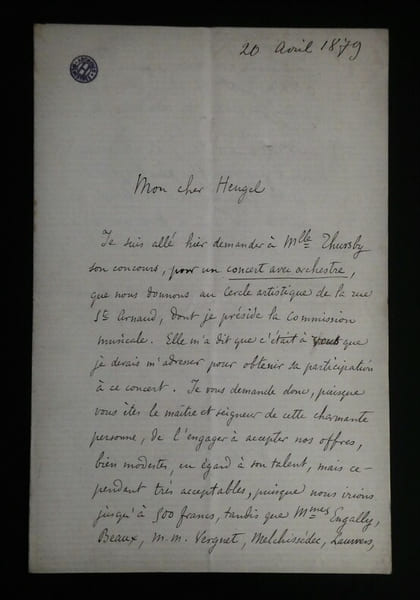 20 Avril 1879
Mon cher Heugel
Je suis allé hier demander à Mlle Thursby
son concours, pour un concert avec orchestre,
que nous donnons au Cercle artistique de la rue
St Arnaud, dont je préside la Commission
musicale. Elle m'a dit que c'était à vous que
je devais m'adresser pour obtenir sa participation
à ce concert. Je vous demande donc, puisque
vous êtes le maître et seigneur de cette charmante
personne, de l'engager à accepter nos offres,
bien modestes, eu égard à son talent, mais ce-
pendant très acceptables, puisque nous irions
jusqu'à 500 francs, tandis que Mmes Engally,
Beaux, M.M. Vergnet, Melchissédec, Lauwers,